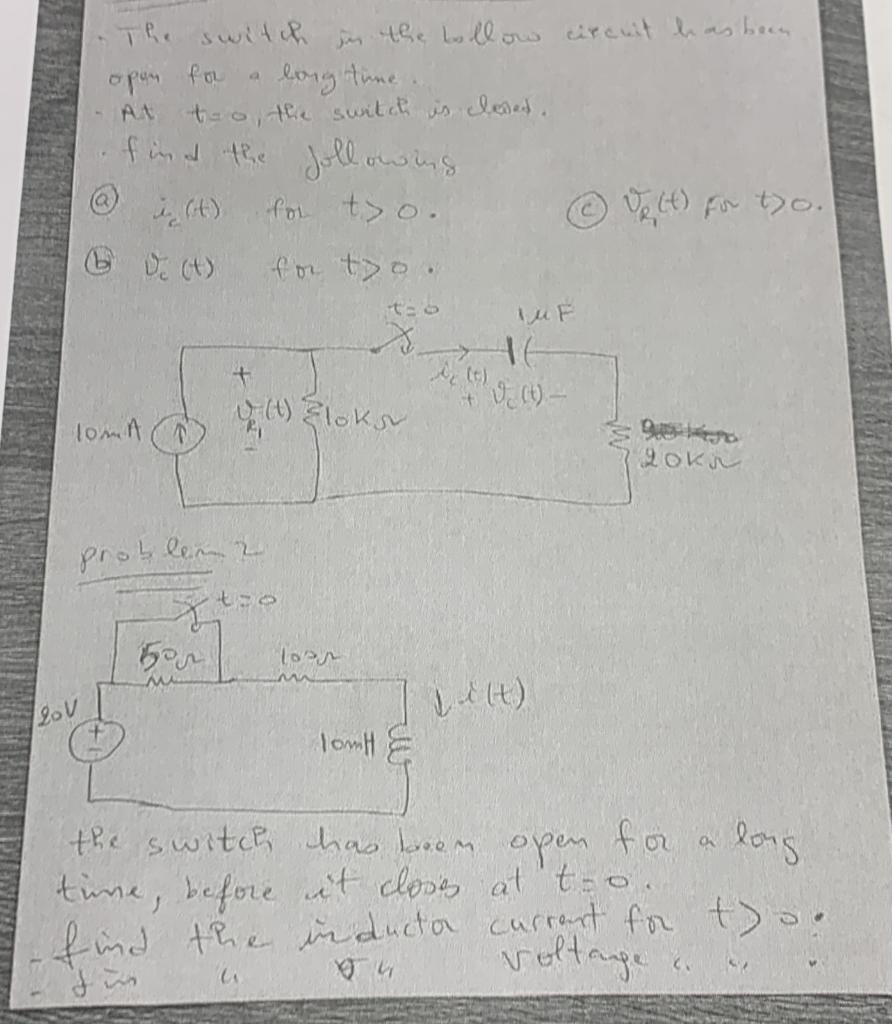 . The switch in the bollow circuit has been
open for a long time.
- At t=0, the switch is closed.
. find the following
(a) i_c(t) for t>0. (c) V_R1(t) For t>0.
(b) V_c(t) for t>0.
t=0 1μF
i_c(t)
+ V_c(t) -
+
V_R1(t) 10KΩ
-
10mA
20KΩ
problem 2
t=0
50Ω 100Ω
i(t)
20V
+
-
10mH
the switch has been open for a long
time, before it closes at t=0.
- find the inductor current for t>0.
- fin " " voltange " " .